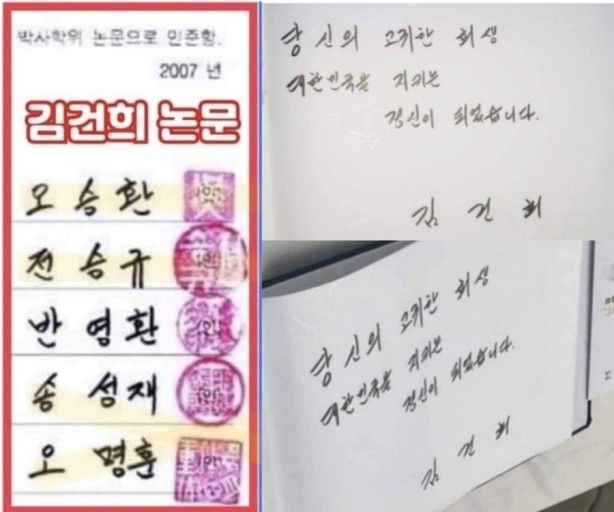 박사학위 논문으로 인준함.
2007 년
김건희 논문
오 승 환
전 승 규
반 영 환
송 성 재
오 명 훈
당신의 고귀한 희생
대한민국을 지키는
정신이 되었습니다.
김 건 희
당신의 고귀한 희생
대한민국을 지키는
정신이 되었습니다.
김 건 희